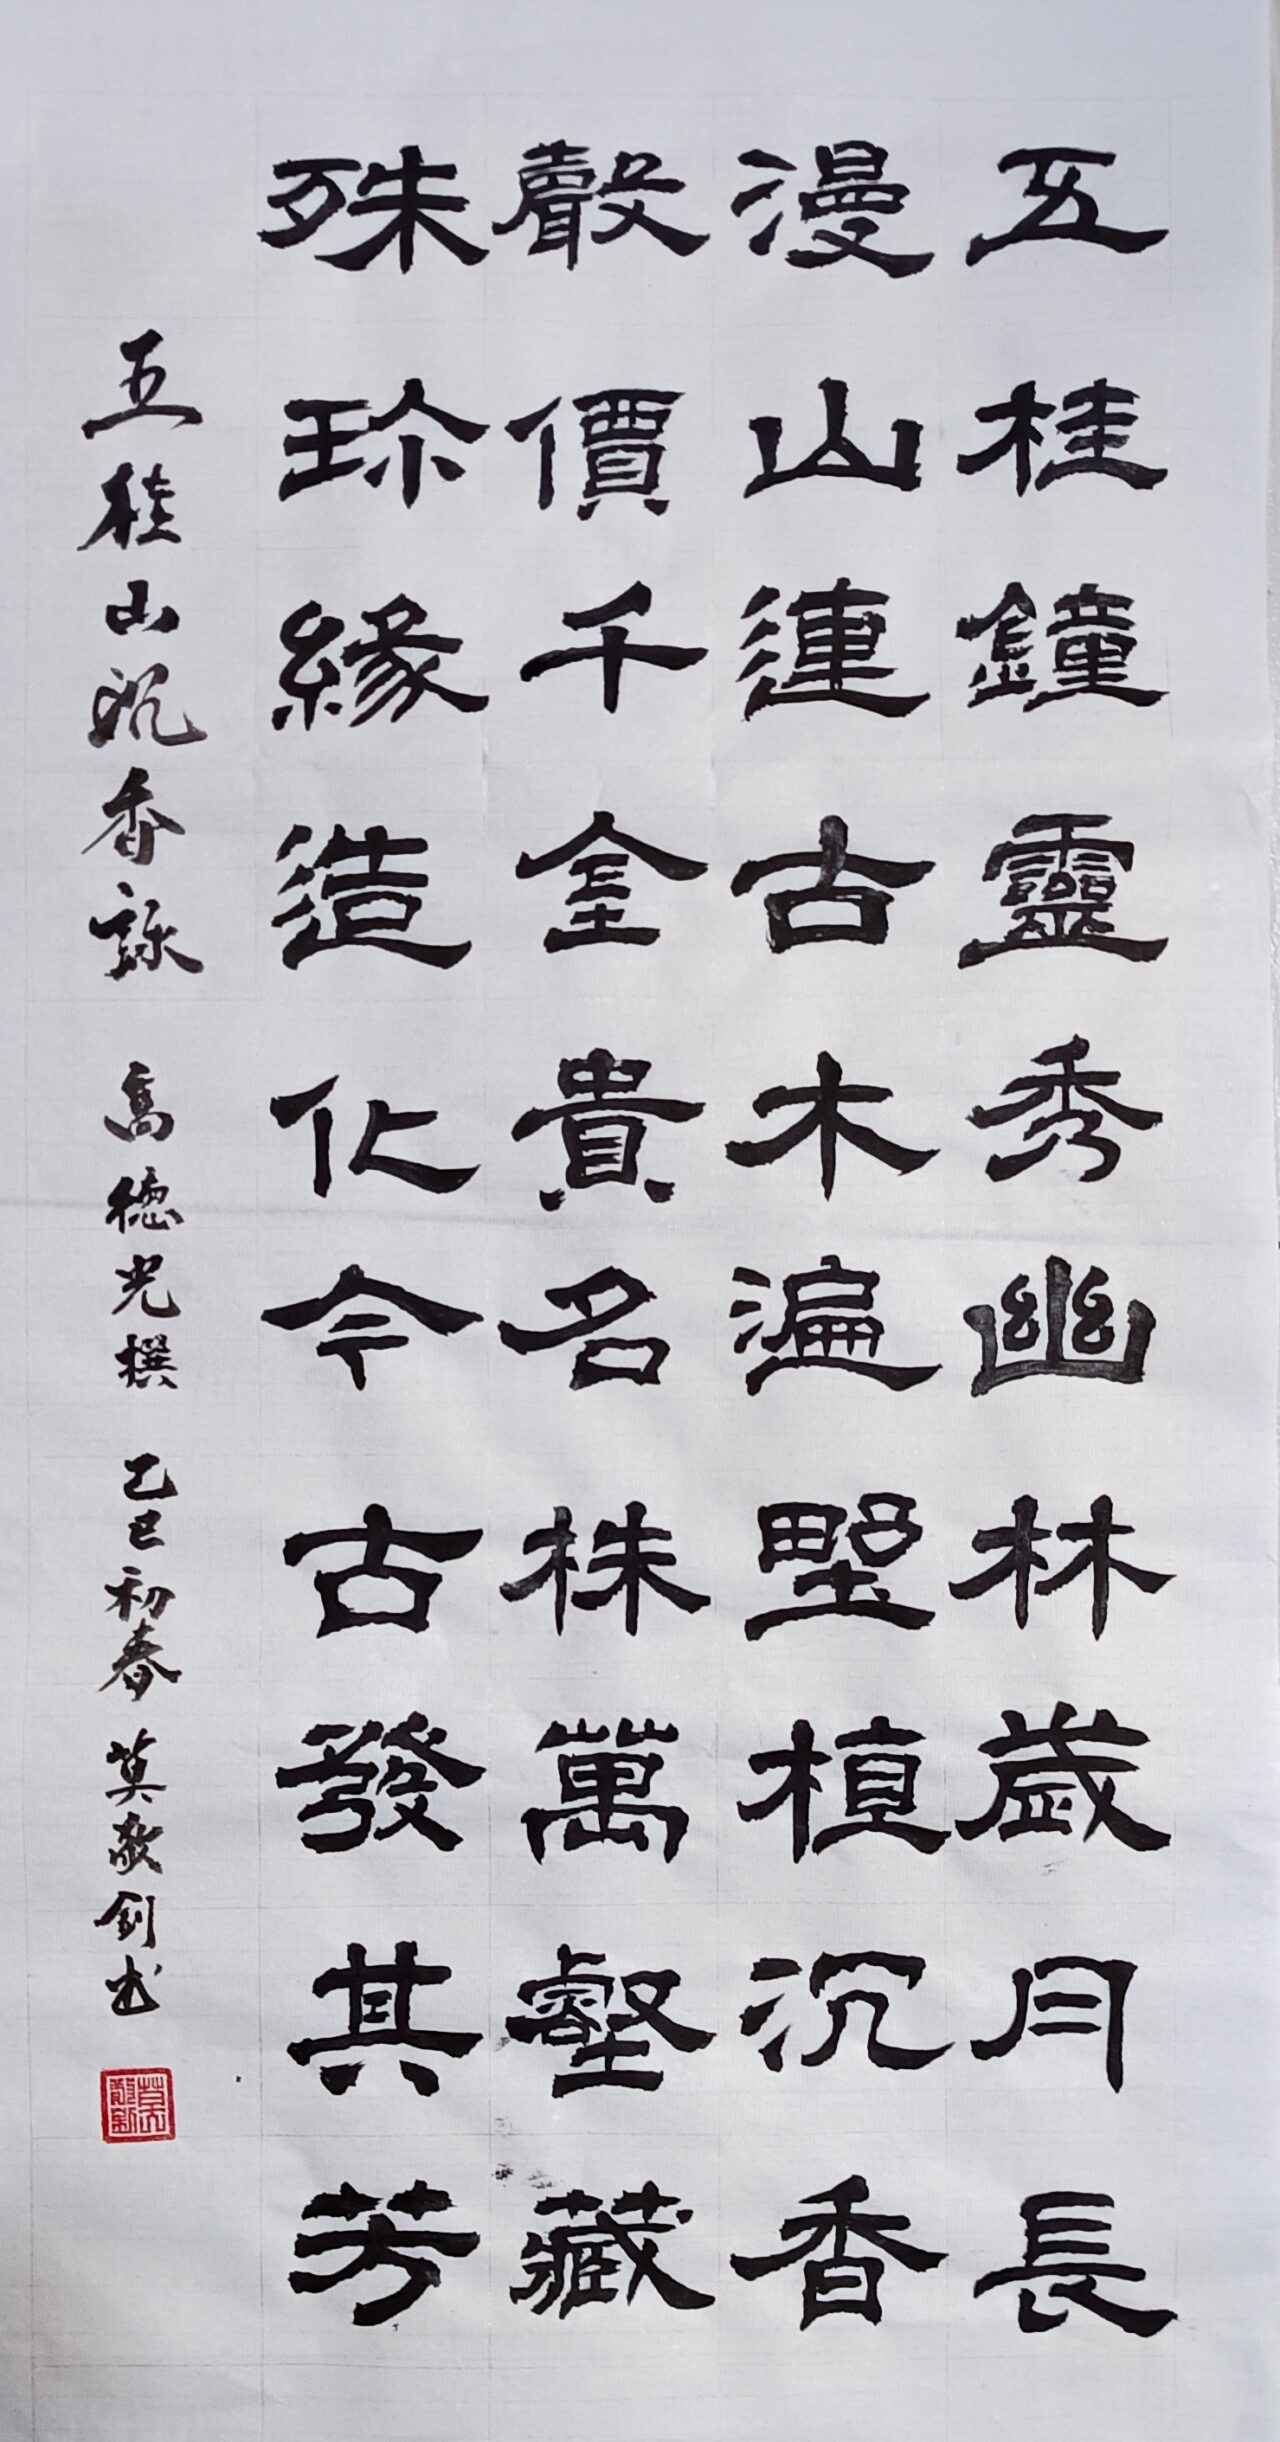 五桂鐘靈秀幽林歲月長
漫山連古木遍野植沉香
聲價千金貴名株萬壑藏
殊珍緣造化今古發其芳
五桂山沉香詠 高德光撰 乙巳初春 莫敬釗书